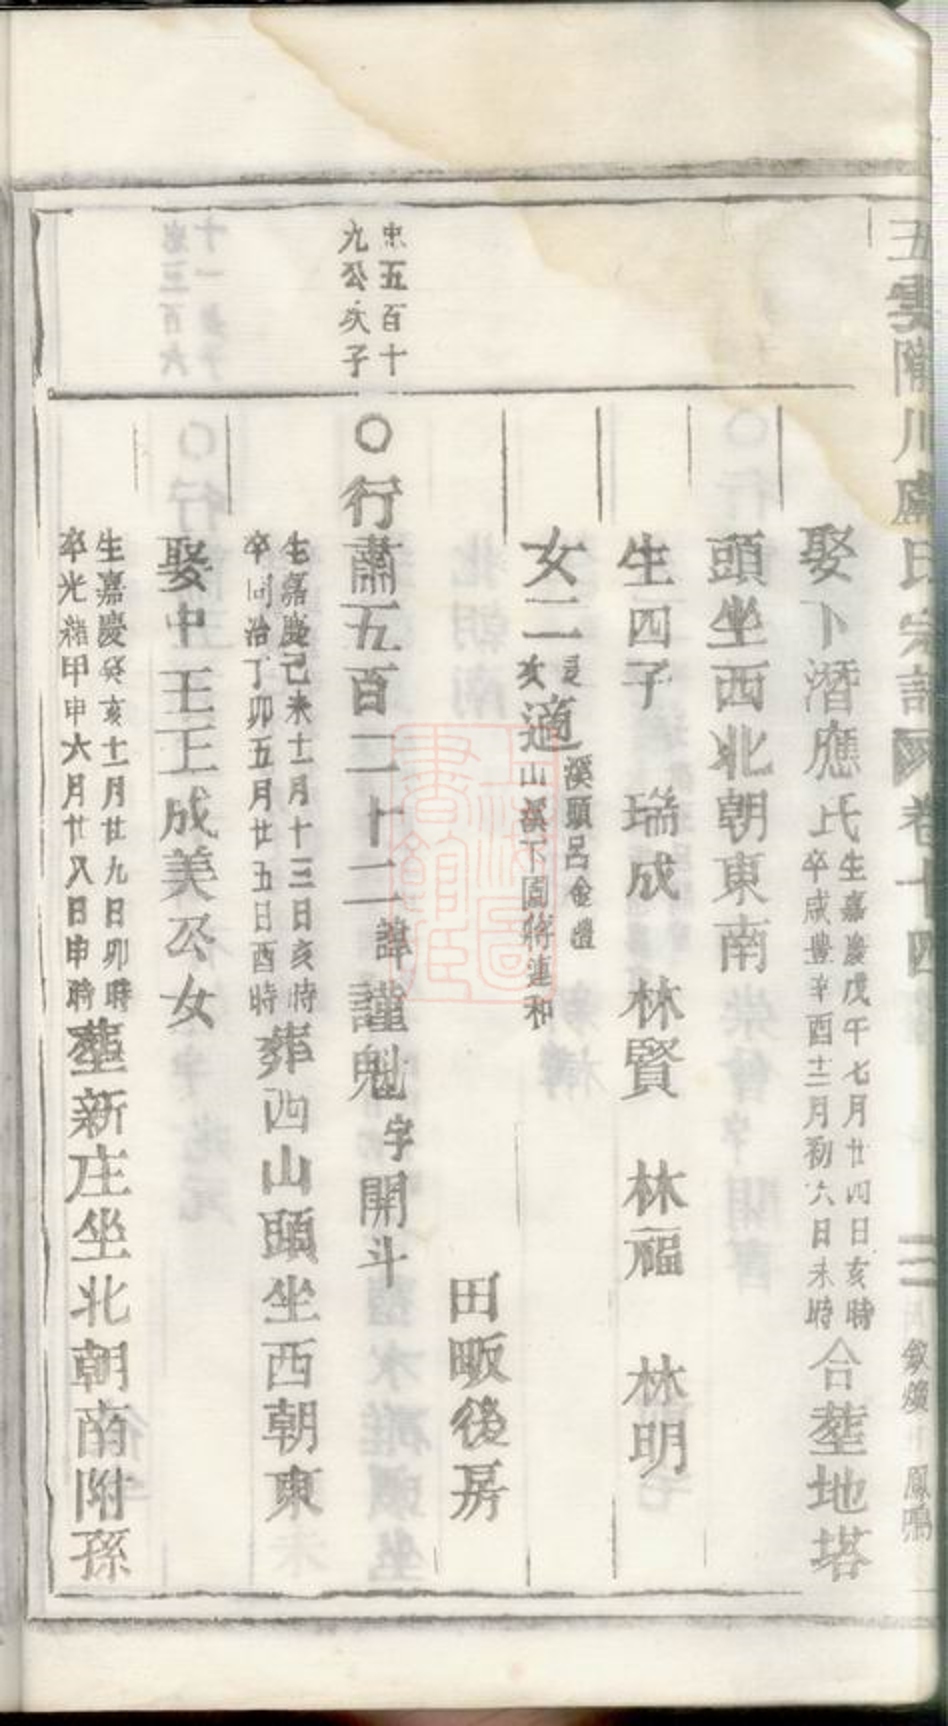 五雲隴川盧氏宗譜 卷十四
娶卜潛應氏生嘉慶戊午七月廿四日亥時卒咸豐辛酉十二月初六日未時合塟地塔
頭坐西北朝東南
生四子 瑞成 林賢 林福 林明
女二 長適溪頭呂金禮 次適山溪下園蔣連和
田畈後房
忠五百十九公次子
〇行肅五百二十二諱謹魁字開斗
生嘉慶己未十一月十三日亥時卒同治丁卯五月廿五日酉時葬西山頭坐西朝東
娶中王王成美公女
生嘉慶癸亥十一月廿九日卯時卒光緒甲申六月廿八日申時塟新庄坐北朝南附孫